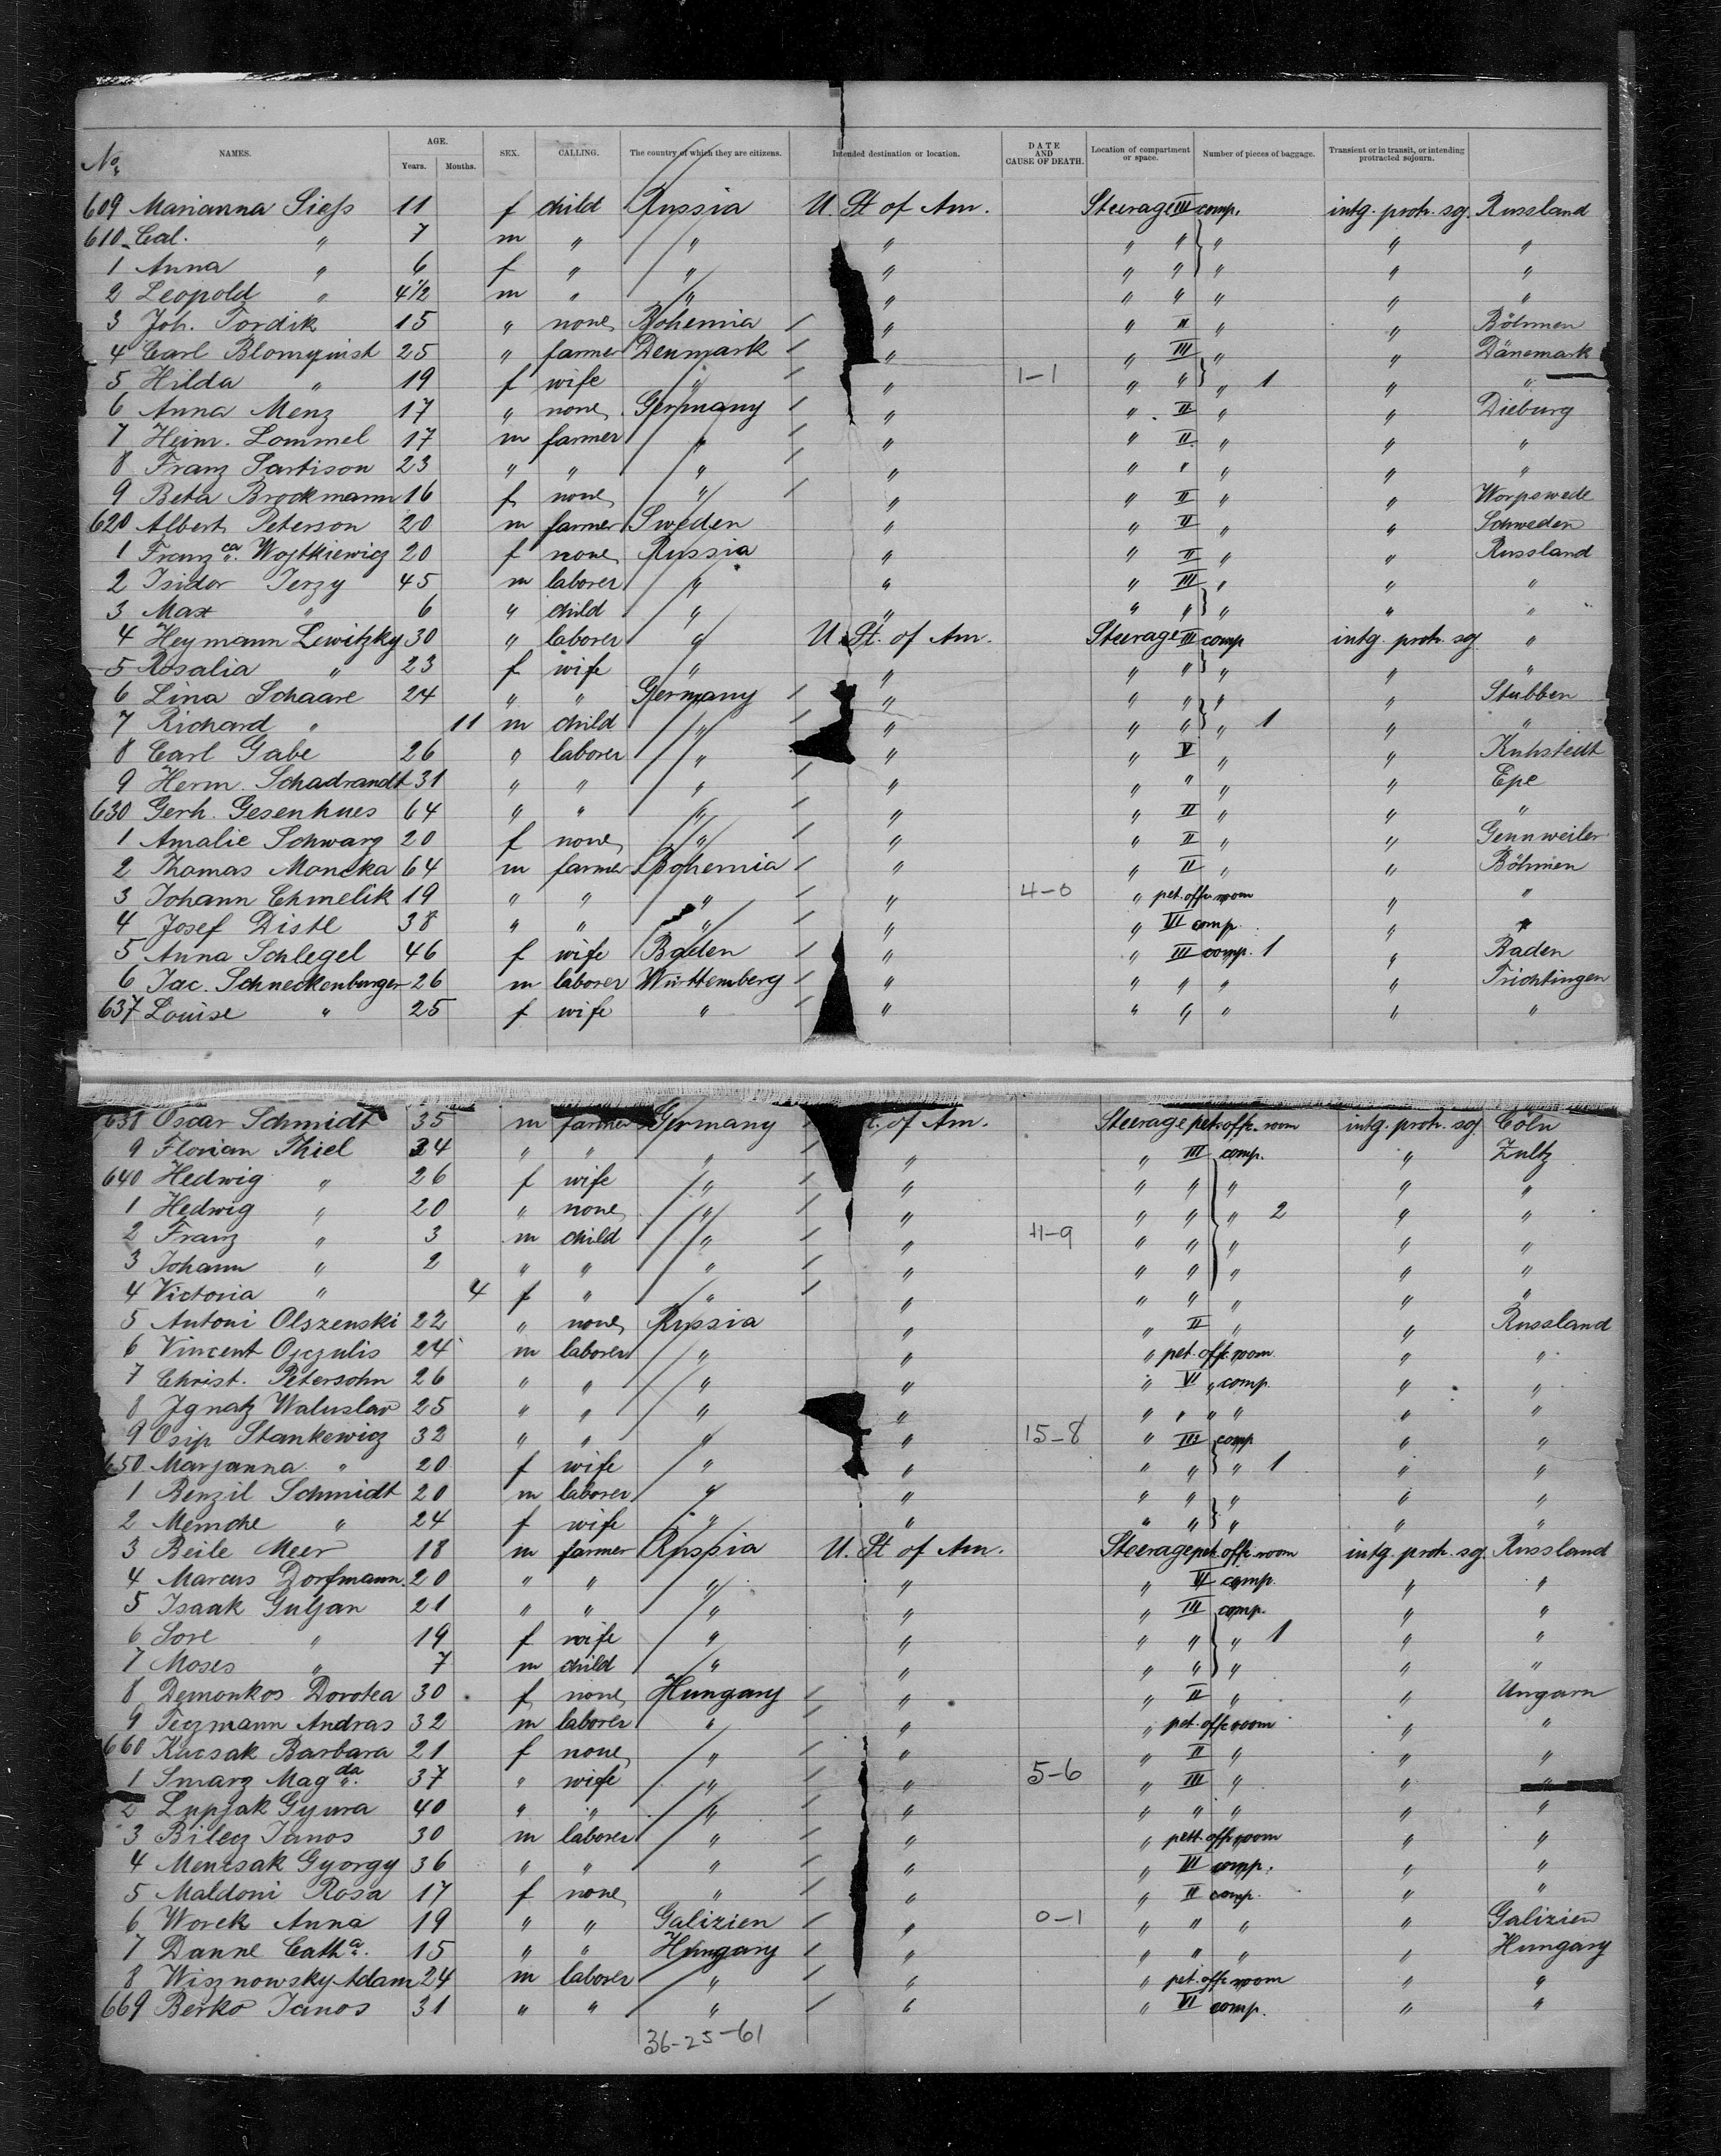 No. NAMES. AGE. Years. Months. SEX. CALLING. The country of which they are citizens. Intended destination or location. DATE AND CAUSE OF DEATH. Location of compartment or space. Number of pieces of baggage. Transient or in transit, or intending protracted sojourn.
609 Marianna Siess 11 f child Russia U. St of Am. Steerage III comp. intg. protr. soj. Russland
610 Cal. " 7 m " " " " " " " "
1 Anna " 6 f " " " " " " " "
2 Leopold " 4½ m " " " " " " " "
3 Joh. Tordik 15 " none Bohemia / " " II " " Böhmen
4 Carl Blomquist 25 " farmer Denmark / " " III " " Dänemark
5 Hilda " 19 f wife " / " 1-1 " " " 1 " "
6 Anna Menz 17 " none Germany / " " II " " Dieburg
7 Heinr. Lommel 17 m farmer " / " " II " " "
8 Franz Sartison 23 " " " / " " " " " "
9 Beta Brockmann 16 f none " / " " II " " Worpswede
620 Albert Peterson 20 m farmer Sweden " " II " " Schweden
1 Franzca. Wojtkiewicz 20 f none Russia " " II " " Russland
2 Isidor Jerzy 45 m laborer " " " III " " "
3 Max " 6 " child " " " " " " "
4 Heymann Lewitzky 30 " laborer " U. St. of Am. Steerage III comp intg. protr. soj "
5 Rosalia " 23 f wife " " " " " " "
6 Lina Schaare 24 " " Germany / " " " " " Stubben
7 Richard " 11 m child " / " " " " 1 " "
8 Carl Gabe 26 " laborer " " " V " " Kuhstedt
9 Herm. Schadrandt 31 " " " / " " " " " Epe
630 Gerh. Gesenhues 64 " " " / " " II " " "
1 Amalie Schwarz 20 f none " / " " II " " Gennweiler
2 Thomas Moncka 64 m farmer Bohemia / " " II " " Böhmen
3 Johann Chmelik 19 " " " / " 4-0 " pet. offr. room " "
4 Josef Distl 38 " " " / " " VI comp. " "
5 Anna Schlegel 46 f wife Baden / " " III comp. 1 " Baden
6 Jac. Schneckenburger 26 m laborer Württemberg / " " " " " Trichtingen
637 Louise " 25 f wife " / " " " " " "
638 Oscar Schmidt 35 m farmer Germany / t. of Am. Steerage pet. offr. room intg. protr. soj. Cöln
9 Florian Thiel 34 " " " / " " III comp. " Zultz
640 Hedwig " 26 f wife " / " " " " " "
1 Hedwig " 20 " none " / " " " " 2 " "
2 Franz " 3 m child " / " 11-9 " " " " "
3 Johann " 2 " " " / " " " " " "
4 Victoria " 4 f " " / " " " " " "
5 Antoni Olszenski 22 " none Russia " " II " " Russland
6 Vincent Ojczulis 24 m laborer " " " pet. off. room " "
7 Christ. Petersohn 26 " " " " " VI " comp. " "
8 Ignatz Waluslav 25 " " " " " " " " " "
9 Osip Stankewicz 32 " " " " 15-8 " III comp " "
650 Marjanna " 20 f wife " " " " " 1 " "
1 Benzil Schmidt 20 m laborer " " " " " " "
2 Memche " 24 f wife " " " " " " "
3 Beile Meer 18 m farmer Russia U. St of Am. Steerage pet. offr. room intg. protr. soj. Russland
4 Marcus Dorfmann 20 " " " " " VI comp. " "
5 Isaak Guljan 21 " " " " " III comp. " "
6 Sore " 19 f wife " " " " " 1 " "
7 Moses " 7 m child " " " " " " "
8 Demonkos Dorotea 30 f none Hungary / " " II " " Ungarn
9 Teczmann Andras 32 m laborer " / " " pet. offr. room " "
660 Kucsak Barbara 21 f none " / " " II " " "
1 Smarz Magda. 37 " wife " / " 5-6 " III " " "
2 Lupjak Gyura 40 " " " / " " " " " "
3 Bilecz Janos 30 m laborer " / " " pett. offr. room " "
4 Menzsak Gyorgy 36 " " " / " " VI comp. " "
5 Maldoni Rosa 17 f none " / " " II comp. " "
6 Worek Anna 19 " " Galizien / " 0-1 " " " " Galizien
7 Danne Catha. 15 " " Hungary / " " " " " Hungary
8 Wisznowsky Adam 24 m laborer " / " " pet. offr. room " "
669 Berko Janos 31 " " " / " " VI comp. " "
36-25-61